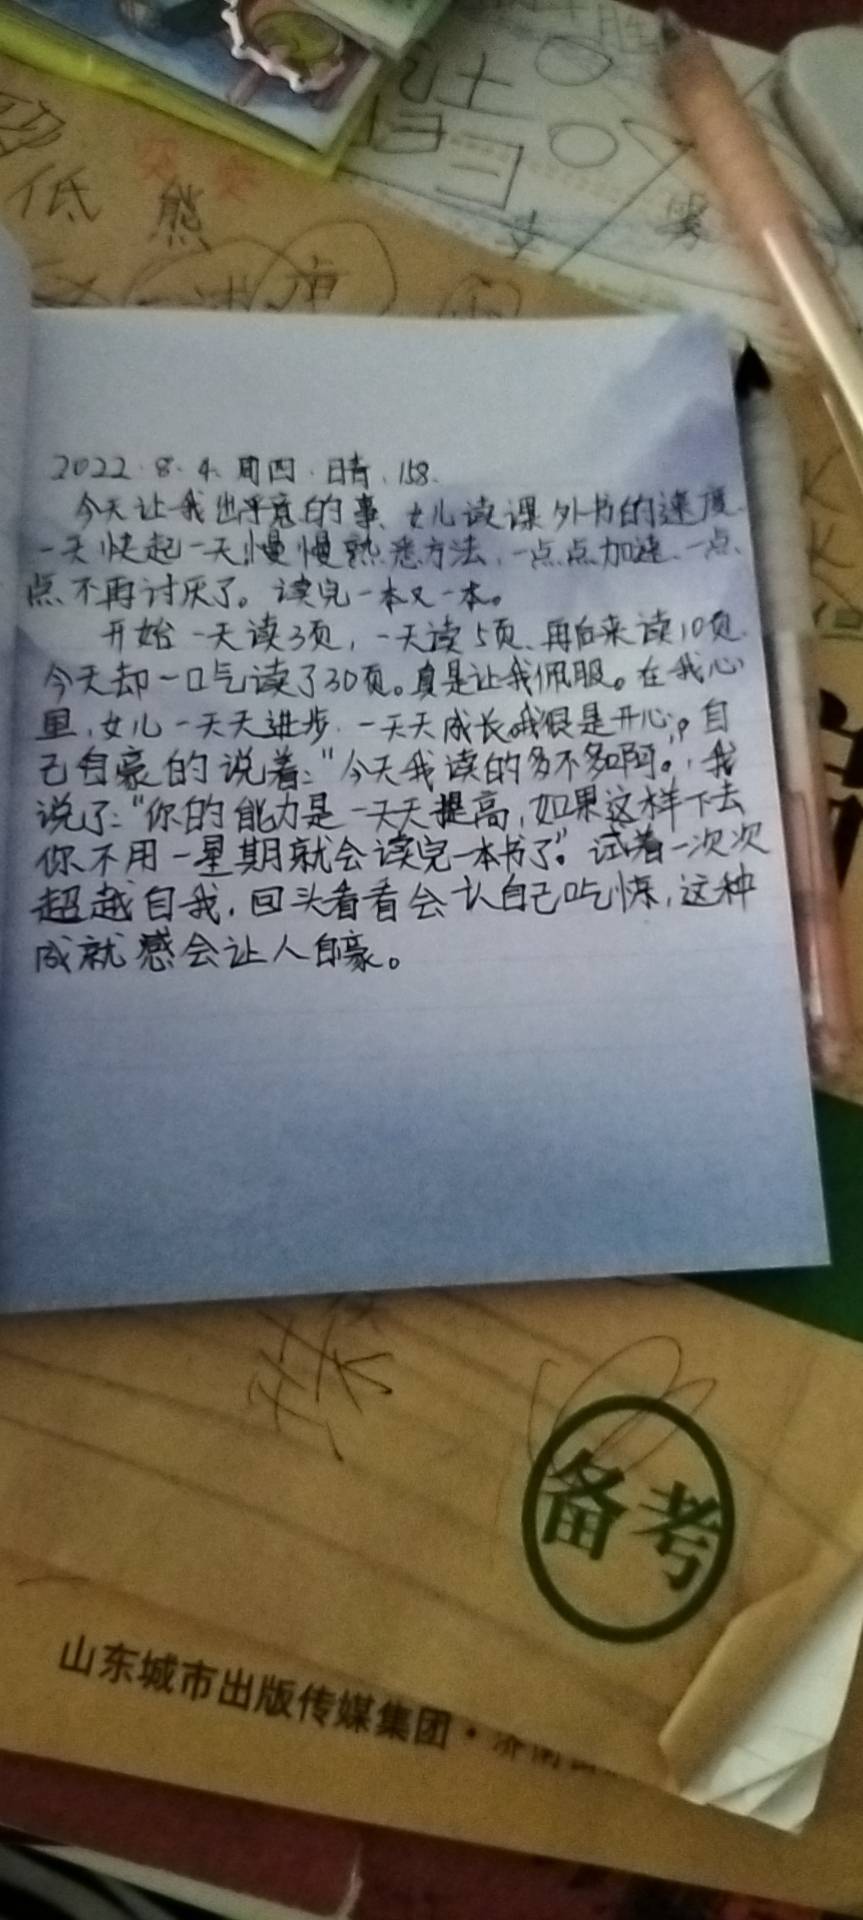 低 熊
2022.8.4.周四.晴.158.
今天让我出乎意的事、女儿读课外书的速度
一天快起一天,慢慢熟悉方法,一点点加速、一点
点不再讨厌了。读完一本又一本。
开始一天读3页,一天读5页、再后来读10页
今天却一口气读了30页。真是让我佩服。在我心
里,女儿一天天进步.一天天成长。我很是开心,自
己自豪的说着:“今天我读的多不多啊。”我
说了:“你的能力是一天天提高,如果这样下去
你不用一星期就会读完一本书了”。试着一次次
超越自我,回头看看会认自己吃惊,这种
成就感会让人自豪。
备考
山东城市出版传媒集团·济南